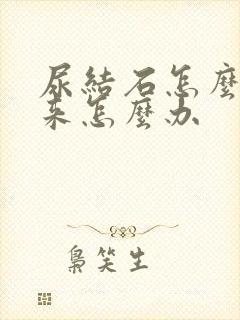 尿結石怎麼
来怎麼办
梟笑生